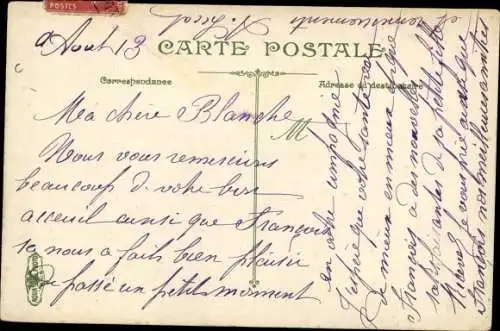 POSTES
Aout 13
CARTE POSTALE
Correspondance
Adresse du destinataire
M
Ma chère Blanche
Nous vous remercions
beaucoup de votre bon
acceuil ainsi que François
sa nous a fait bien plaisir
passé un petit moment
en votre
J'espère que votre santé va
de mieux en mieux
François a des nouvelles
de sa petite fille
ainsi que
François nos meilleures amitiés
et remerciements